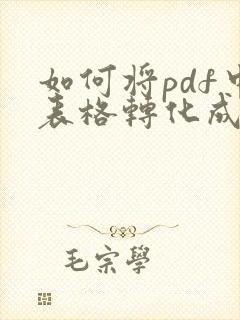 如何将pdf中
表格轉化成
毛宗學